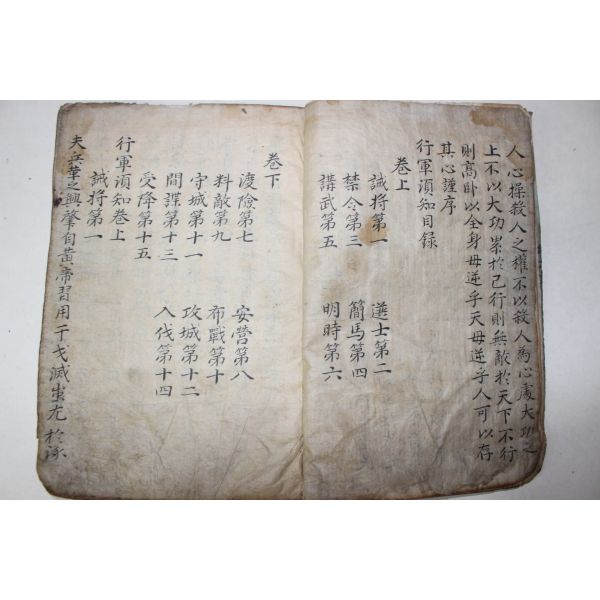 人心操殺人之權不以殺人為心處大功之
上不以大功累於己行則無敵於天下不行
則高臥以全身毋逆乎天毋逆乎人可以存
其心謹序
行軍須知目録
卷上
誡將第一　選士第二
禁令第三　簡馬第四
講武第五　明時第六
卷下
渡險第七　安營第八
料敵第九　布戰第十
守城第十一　攻城第十二
間諜第十三　入伐第十四
受降第十五
行軍須知卷上
誡將第一
夫兵革之興肇自黃帝習用干戈滅蚩尤於涿